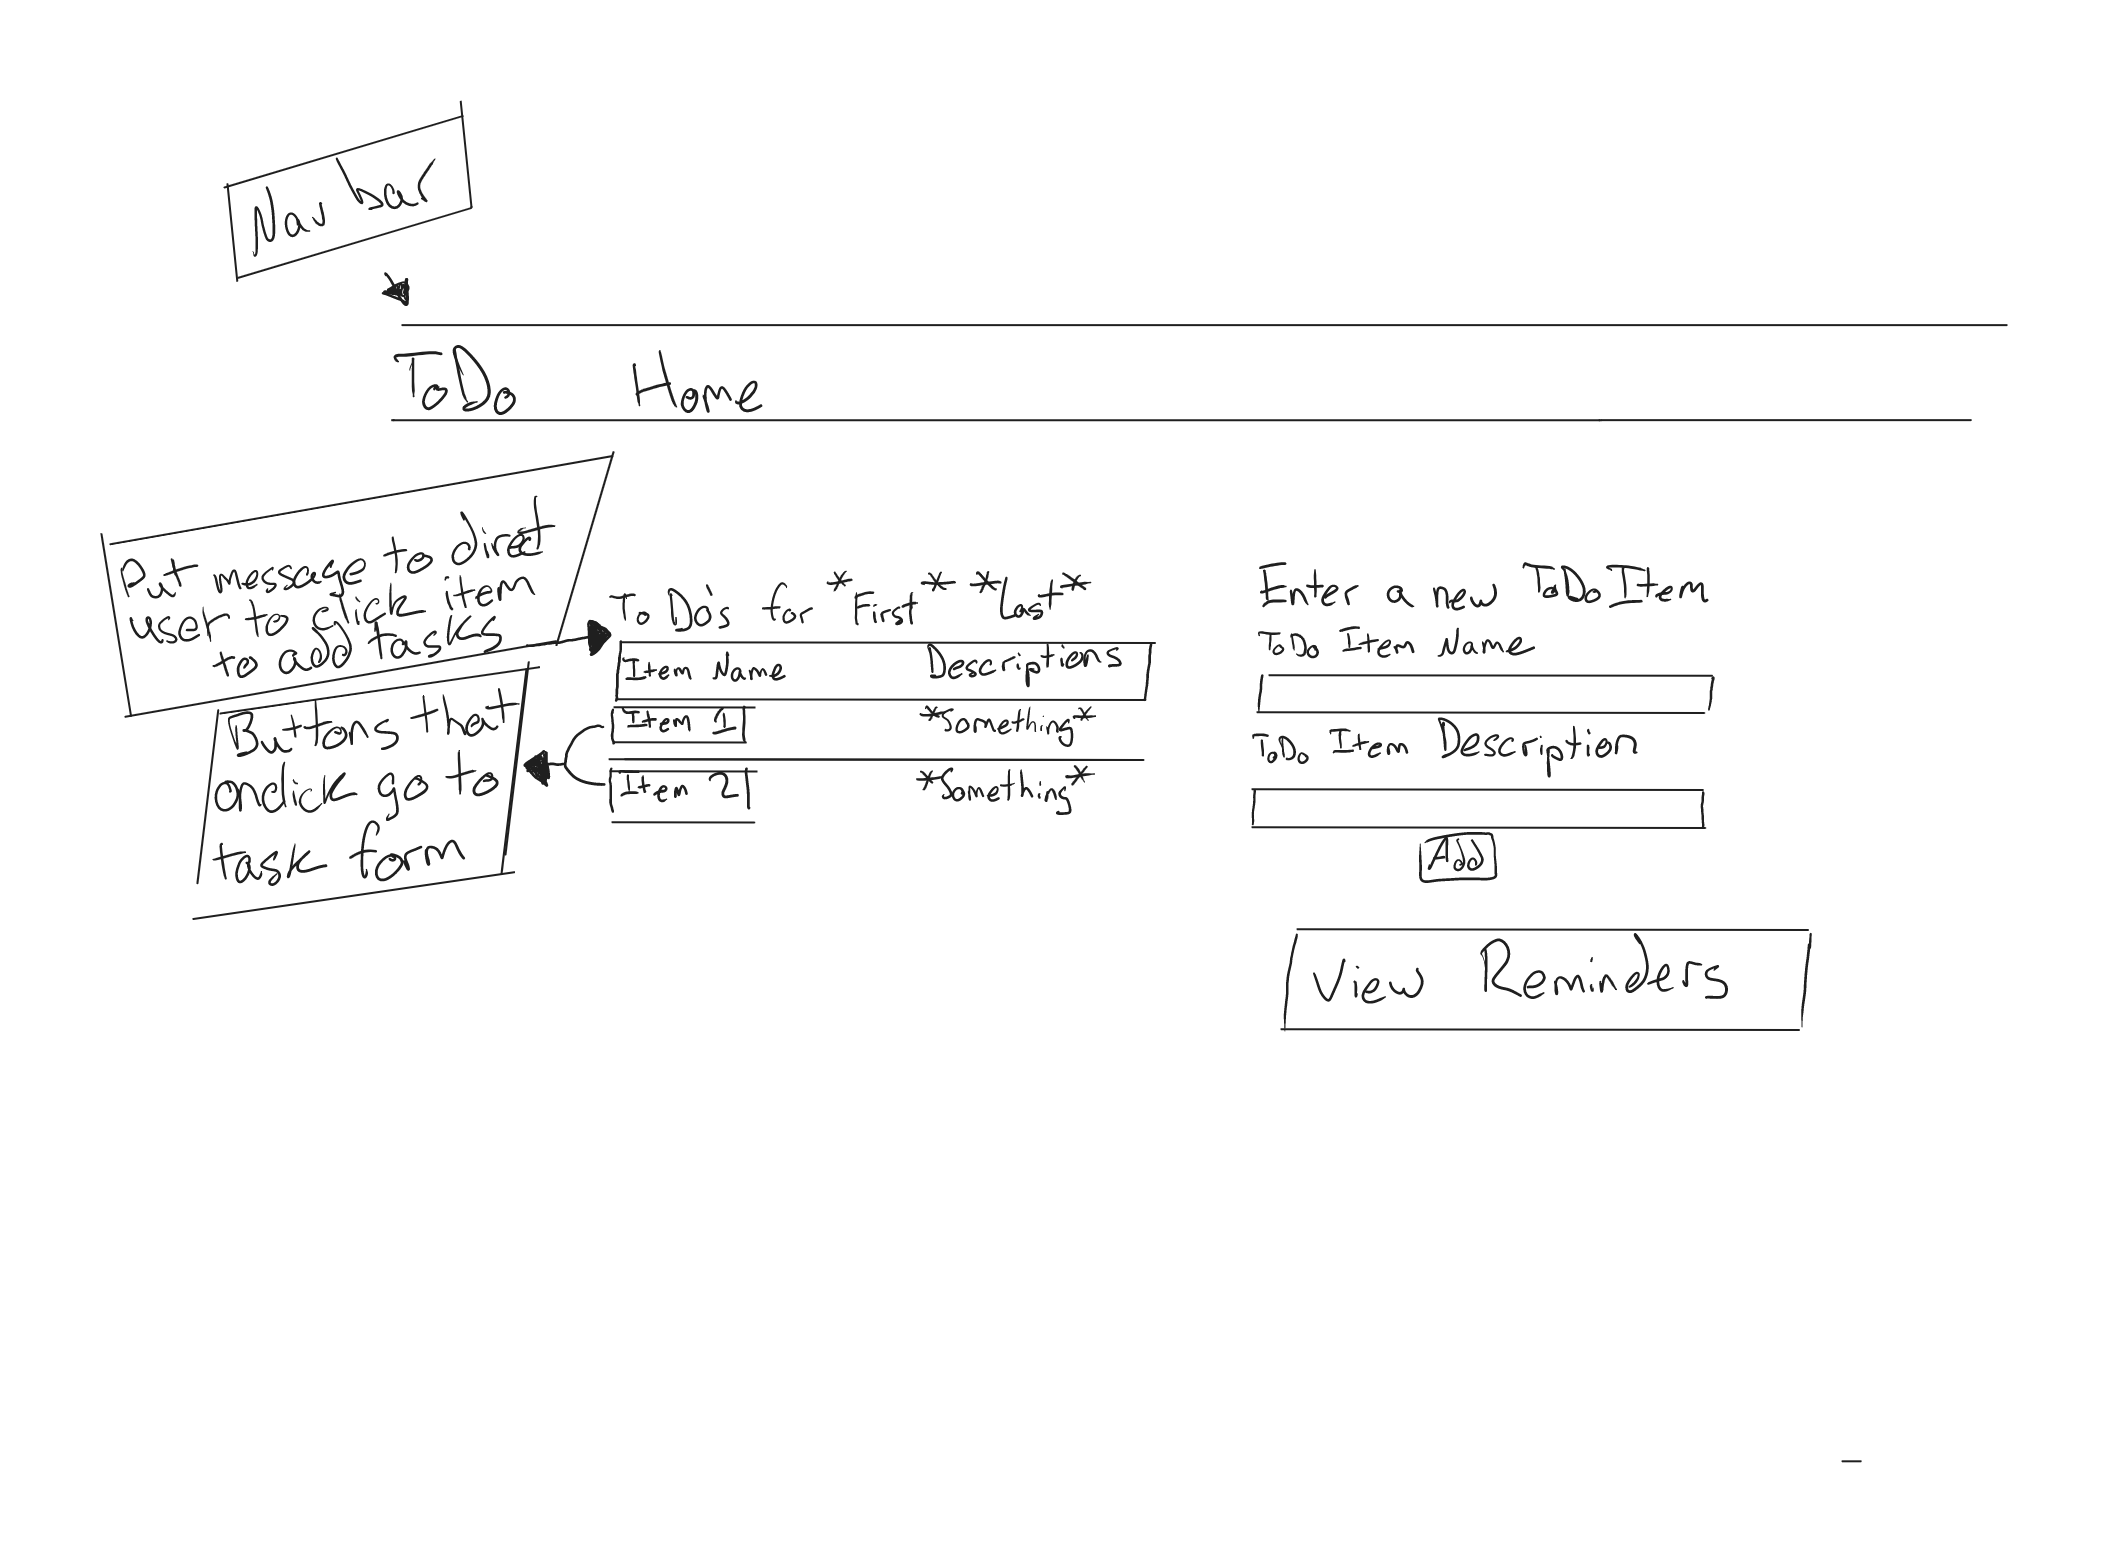 Nav bar
ToDo Home
Put message to direct
user to click item
to add tasks
Buttons that
onclick go to
task form
To Do's for *First* *Last*
Item Name Descriptions
Item 1 *Something*
Item 2 *Something*
Enter a new ToDo Item
ToDo Item Name
ToDo Item Description
Add
View Reminders